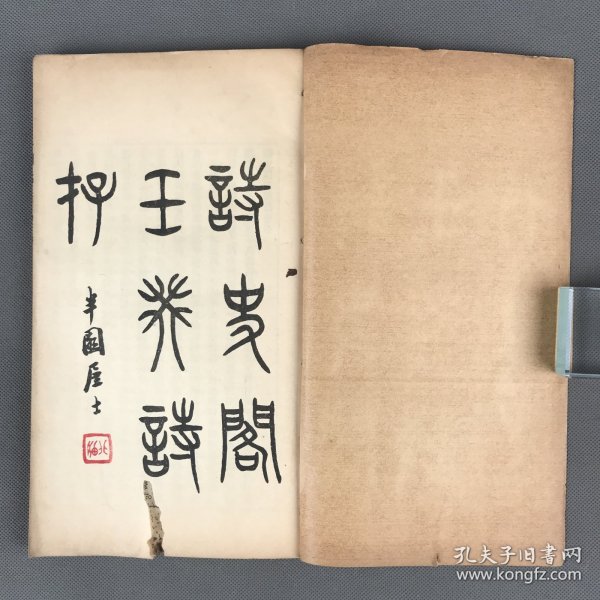 詩史閣
壬癸詩
存
半園居士
孔夫子旧書网
www.kongfz.com